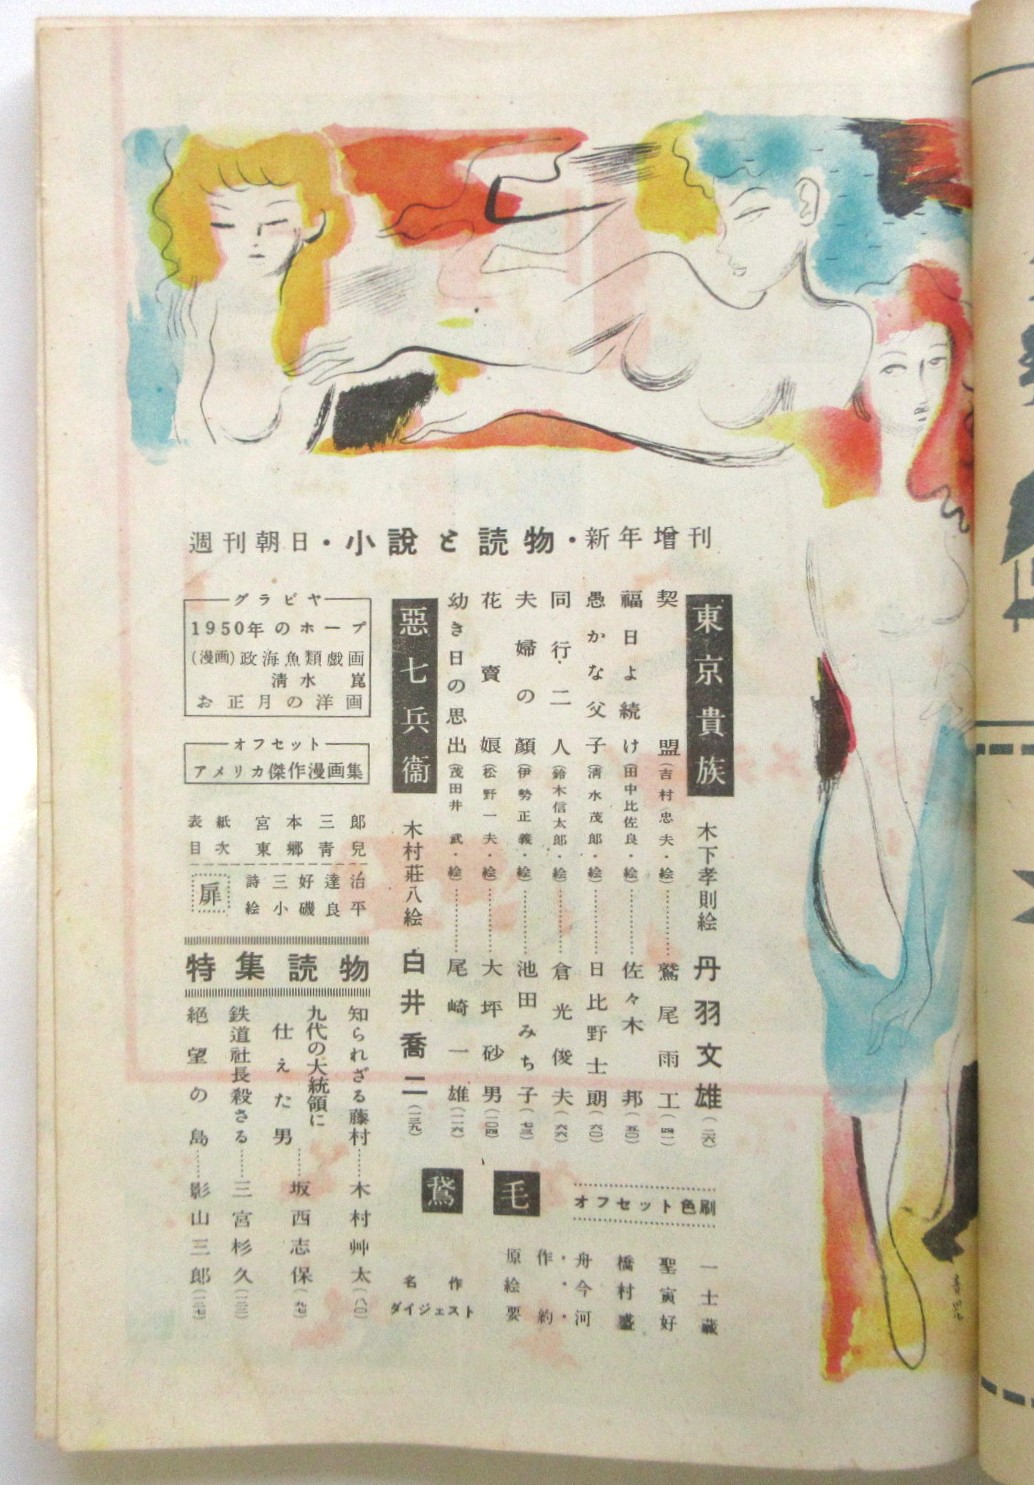 週刊朝日・小說と読物・新年増刊
東京貴族 木下孝則絵 丹羽文雄(二六)
契盟(吉村忠夫・絵)………鷲尾雨工(四一)
福日よ続け(田中比佐良・絵)………佐々木邦(五〇)
愚かな父子(清水茂郎・絵)………日比野士朗(六〇)
同行二人(鈴木信太郎・絵)………倉光俊夫(六六)
夫婦の顔(伊勢正義・絵)………池田みち子(七三)
花賣娘(松野一夫・絵)………大坪砂男(一〇四)
幼き日の思出(茂田井武・絵)………尾崎一雄(一一六)
惡七兵衞 木村莊八絵 白井喬二(一三九)
グラビヤ
1950年のホープ
(漫画)政海魚類戯画
清水崑
お正月の洋画
オフセット
アメリカ傑作漫画集
表紙 宮本三郎
目次 東郷青兒
扉
詩 三好達治
絵 小磯良平
特集読物
知られざる藤村………木村艸太(八〇)
九代の大統領に
仕えた男………坂西志保(九七)
鉄道社長殺さる………三宮杉久(一三三)
絶望の島………影山三郎(一二七)
オフセット色刷
毛鵞
原作・舟橋聖一
絵・今村寅士
要約・河盛好蔵
名作
ダイジェスト
青児